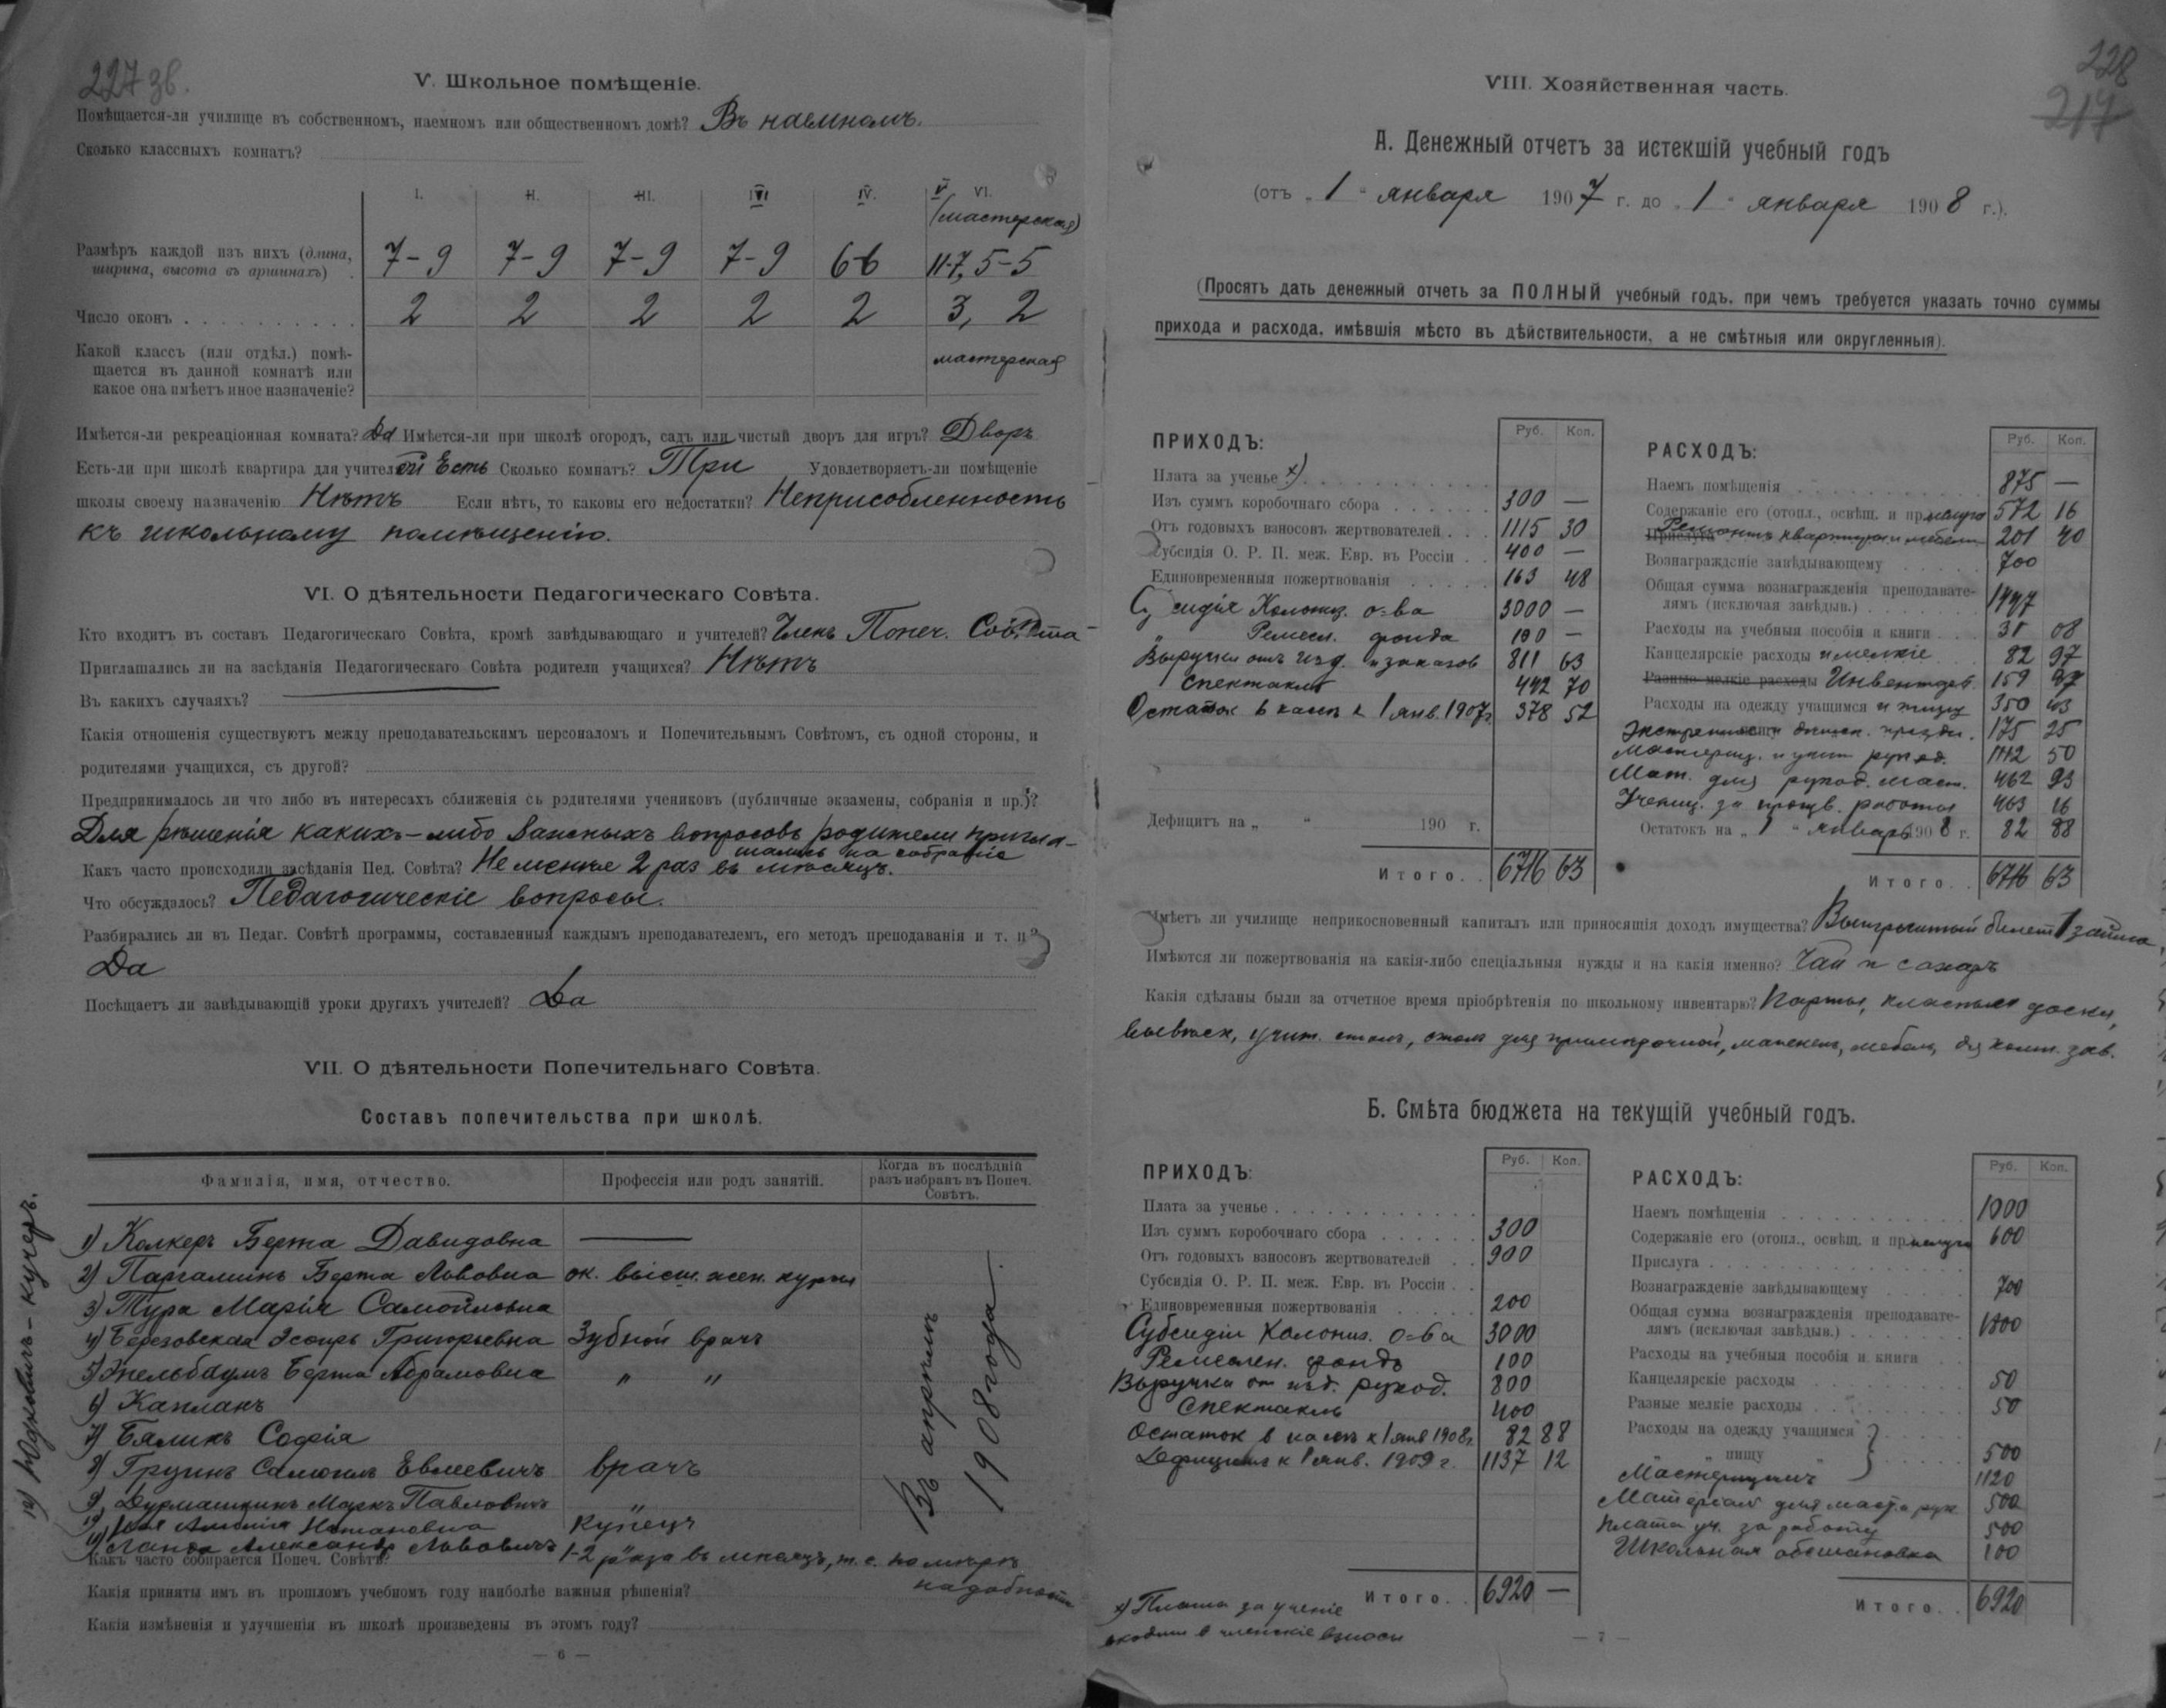 227 зв.
V. Школьное помѣщеніе.
Помѣщается-ли училище въ собственномъ, наемномъ или общественномъ домѣ? Въ наемномъ.
Сколько классныхъ комнатъ?
I. II. III. IV. V VI.
(мастерская)
Размѣръ каждой изъ нихъ (длина, ширина, высота въ аршинахъ) 7-9 7-9 7-9 7-9 6-6 11-7, 5-5
Число оконъ 2 2 2 2 2 3, 2
Какой классъ (или отдѣл.) помѣ-
щается въ данной комнатѣ или
какое она имѣетъ иное назначеніе? мастерская
Имѣется-ли рекреаціонная комната? Да Имѣется-ли при школѣ огородъ, садъ или чистый дворъ для игръ? Дворъ
Есть-ли при школѣ квартира для учителей Есть Сколько комнатъ? Три Удовлетворяетъ-ли помѣщеніе
школы своему назначенію Нѣтъ Если нѣтъ, то каковы его недостатки? Неприсобленность
къ школьному помѣщенію.
VI. О дѣятельности Педагогическаго Совѣта.
Кто входитъ въ составъ Педагогическаго Совѣта, кромѣ завѣдывающаго и учителей? Члены Попеч. Совѣта
Приглашались ли на засѣданія Педагогическаго Совѣта родители учащихся? Нѣтъ
Въ какихъ случаяхъ?
Какія отношенія существуютъ между преподавательскимъ персоналомъ и Попечительнымъ Совѣтомъ, съ одной стороны, и
родителями учащихся, съ другой?
Предпринималось ли что либо въ интересахъ сближенія съ родителями учениковъ (публичные экзамены, собранія и пр.)?
Для рѣшенія какихъ-либо важныхъ вопросовъ родители пригла-
шались на собраніе
Какъ часто происходили засѣданія Пед. Совѣта? Не менѣе 2 раз въ мѣсяцъ.
Что обсуждалось? Педагогическіе вопросы.
Разбирались ли въ Педаг. Совѣтѣ программы, составленныя каждымъ преподавателемъ, его методъ преподаванія и т. п.?
Да
Посѣщаетъ ли завѣдывающій уроки другихъ учителей? Да
VII. О дѣятельности Попечительнаго Совѣта.
Составъ попечительства при школѣ.
Фамилія, имя, отчество. Профессія или родъ занятій. Когда въ послѣдній разъ избранъ въ Попеч. Совѣтъ.
1) Колкеръ Берта Давидовна
2) Паргаминъ Берта Львовна ок. высш. жен. курсы
3) Тура Марія Самойловна
4) Березовская Эсѳирь Григорьевна Зубной врачъ
5) Эпельбаумъ Берта Абрамовна " "
6) Капланъ
7) Бяликъ Софія
8) Грузинъ Самуилъ Евсеевичъ врачъ
9) Дурмашкинъ Маркъ Павловичъ "
10) Натановна купецъ
11) Ланда Александръ Львовичъ
12) Юдковичъ - кучеръ.
Въ апрѣлѣ
1908 года.
Какъ часто собирается Попеч. Совѣтъ? 1-2 раза въ мѣсяцъ, т. е. по мѣрѣ
надобности
Какія приняты имъ въ прошломъ учебномъ году наиболѣе важныя рѣшенія?
Какія измѣненія и улучшенія въ школѣ произведены въ этомъ году?
— 6 —
228
217
VIII. Хозяйственная часть.
А. Денежный отчетъ за истекшій учебный годъ
(отъ „ 1 " января 1907 г. до „ 1 " января 1908 г.).
(Просятъ дать денежный отчетъ за ПОЛНЫЙ учебный годъ, при чемъ требуется указать точно суммы
прихода и расхода, имѣвшія мѣсто въ дѣйствительности, а не смѣтныя или округленныя).
ПРИХОДЪ: Руб. Коп.
Плата за ученье x)
Изъ суммъ коробочнаго сбора 300 —
Отъ годовыхъ взносовъ жертвователей 1115 30
Субсидія О. Р. П. меж. Евр. въ Россіи 400 —
Единовременныя пожертвованія 163 48
Субсидія Колониз. о-ва 3000 —
" Ремесл. фонда 100 —
Выручки отъ изд. и заказов 811 63
Спектакль 442 70
Остаток в кассѣ к 1 янв. 1907 г. 378 52
Дефицитъ на „ " 190 г.
Итого 6716 63
РАСХОДЪ: Руб. Коп.
Наемъ помѣщенія 875 —
Содержаніе его (отопл., освѣщ. и пр. прислуга 572 16
Прислуга Ремонтъ квартиры и мебели 201 40
Вознагражденіе завѣдывающему 700
Общая сумма вознагражденія преподавате-
лямъ (исключая завѣдыв.) 1447
Расходы на учебныя пособія и книги 31 08
Канцелярскіе расходы и мелкіе 82 97
Разные мелкіе расходы Инвентарь 159 97
Расходы на одежду учащимся и пищу 350 43
175 25
Мастериц. и учит. рукод. 1112 50
Мат. для рукод. маст. 462 93
Учениц. за произв. работы 463 16
Остатокъ на „ 1 " январь 1908 г. 82 88
Итого 6716 63
Имѣетъ ли училище неприкосновенный капиталъ или приносящія доходъ имущества? Выигрышный билетъ 1 займа
Имѣются ли пожертвованія на какія-либо спеціальныя нужды и на какія именно? Чай и сахаръ
Какія сдѣланы были за отчетное время пріобрѣтенія по школьному инвентарю? Парты, классныя доски,
вывѣск, учит. столъ, столъ для примѣрочной, манекенъ, мебель для комн. зав.
Б. Смѣта бюджета на текущій учебный годъ.
ПРИХОДЪ: Руб. Коп.
Плата за ученье
Изъ суммъ коробочнаго сбора 300
Отъ годовыхъ взносовъ жертвователей 900
Субсидія О. Р. П. меж. Евр. въ Россіи
Единовременныя пожертвованія 200
Субсидіи Колониз. о-ва 3000
Ремеслен. фондъ 100
Выручка от изд. рукод. 800
Спектакль 400
Остаток в кассѣ к 1 янв 1908 г. 82 88
Дефицитъ к 1 янв. 1909 г. 1137 12
Итого 6920 —
РАСХОДЪ: Руб. Коп.
Наемъ помѣщенія 1000
Содержаніе его (отопл., освѣщ. и пр. прислуга 600
Прислуга
Вознагражденіе завѣдывающему 700
Общая сумма вознагражденія преподавате-
лямъ (исключая завѣдыв.) 1800
Расходы на учебныя пособія и книги
Канцелярскіе расходы 50
Разные мелкіе расходы 50
Расходы на одежду учащимся
" " пищу " 500
Мастерицамъ 1120
Матеріалъ для маст. рук 500
Плата уч. за работу 500
Школьная обстановка 100
Итого 6920
x) Плата за ученіе
входитъ в членскіе взносы
— 7 —